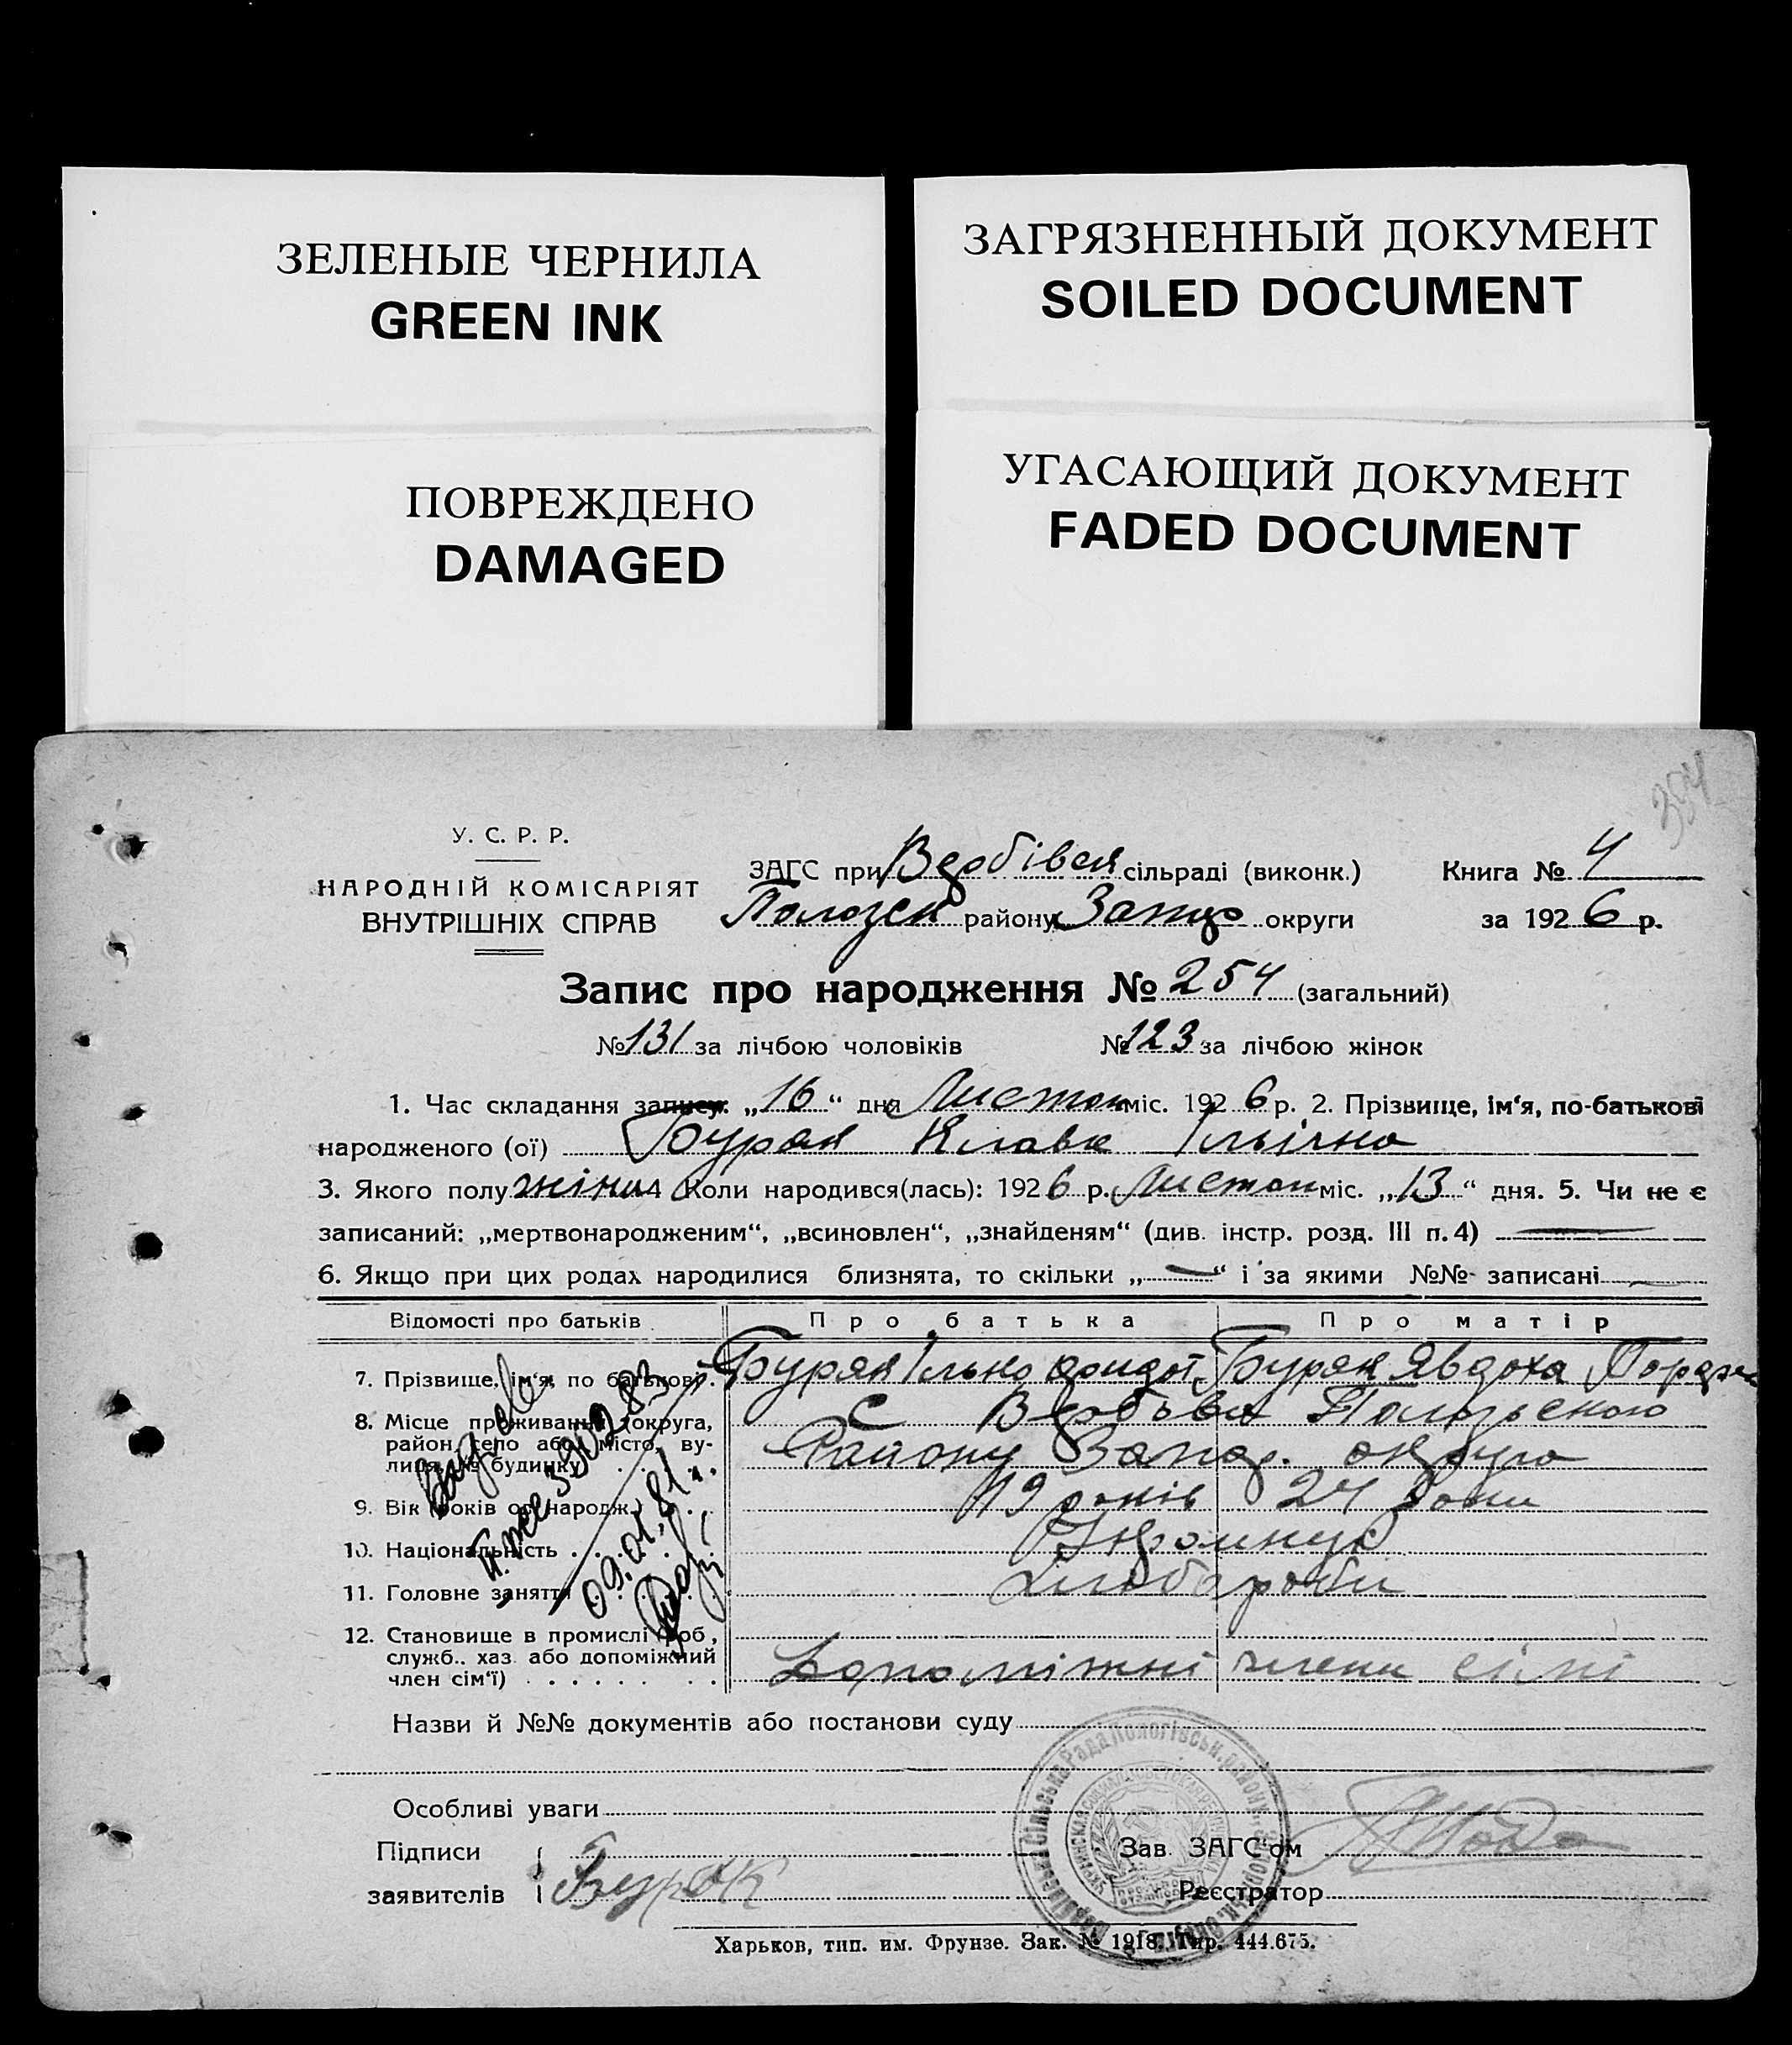 ЗЕЛЕНЫЕ ЧЕРНИЛА
GREEN INK
ЗАГРЯЗНЕННЫЙ ДОКУМЕНТ
SOILED DOCUMENT
ПОВРЕЖДЕНО
DAMAGED
УГАСАЮЩИЙ ДОКУМЕНТ
FADED DOCUMENT
354
У. С. Р. Р.
НАРОДНІЙ КОМІСАРІЯТ
ВНУТРІШНІХ СПРАВ
ЗАГС при Вербівск сільраді (виконк.)
Пологск району Запор округи
Книга № 4
за 1926 р.
Запис про народження № 254 (загальний)
№ 131 за лічбою чоловіків № 123 за лічбою жінок
1. Час складання запису: „16“ дня Листоп міс. 1926 р. 2. Прізвище, ім'я, по-батькові
народженого (ої) Буряк Клава Ільічна
3. Якого полу жіноч 4 Коли народився(лась): 1926 р. Листоп міс. „13“ дня. 5. Чи не є
записаний: „мертвонародженим“, „всиновлен“, „знайденям“ (див. інстр. розд. III п. 4) —
6. Якщо при цих родах народилися близнята, то скільки „—“ і за якими №№ записані —
Відомості про батьків Про батька Про матір
7. Прізвище, ім'я, по батькові. Буряк Ілько Буряк Явдоха
8. Місце проживання (округа, район, село або місто, вулиця, № будинку) с Вербове Пологського
Району Запор. округи
9. Вік (років од народж.) 19 років 24 роки
10. Національність
11. Головне заняття Хлібороби
12. Становище в промислі (роб., служб., хаз. або допоміжний член сім'ї) Допоміжні члени сімї
09.01.81 г.
Назви й №№ документів або постанови суду
Особливі уваги
Підписи
заявителів Буряк
Зав. ЗАГС'ом
Реєстратор
Харьков, тип. им. Фрунзе. Зак. № 1918. Тир. 444.675.